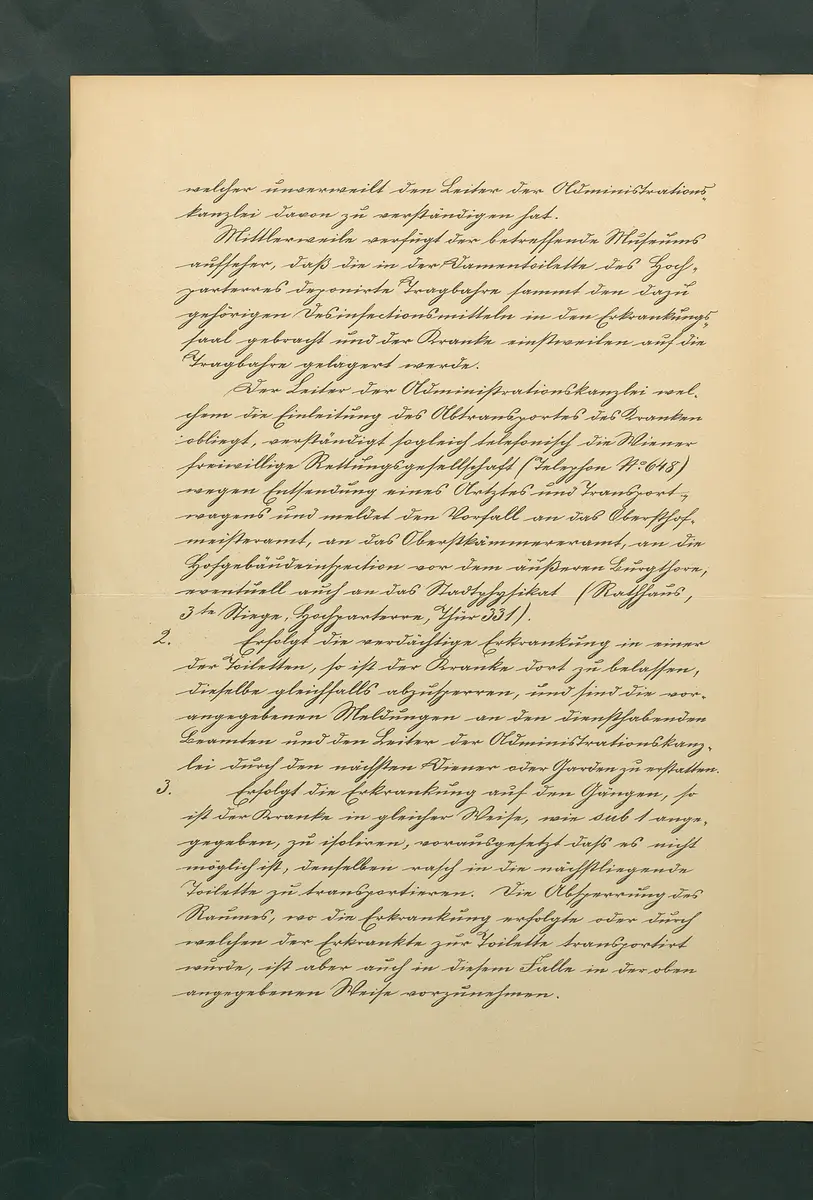 welcher unverweilt den Leiter der Administrations-
kanzlei davon zu verständigen hat.
Mittlerweile verfügt der betreffende Museums
aufseher, daß die in der Damentoilette des Hoch-
parterres deponirte Tragbahre sammt den dazu
gehörigen Desinfectionsmitteln in den Erkrankungs-
saal gebracht und der Kranke einstweilen auf die
Tragbahre gelagert werde.
Der Leiter der Administrationskanzlei wel-
chem die Einleitung des Abtransportes des Kranken
obliegt, verständigt sogleich telefonisch die Wiener
freiwillige Rettungsgesellschaft (Telephon No 648)
wegen Entsendung eines Artztes und Transport-
wagens und meldet den Vorfall an das Obersthof-
meisteramt, an das Oberstkämmereramt, an die
Hofgebäudeinspection vor dem äußeren Burgthore,
eventuell auch an das Stadtphysikat (Rathhaus,
3te Stiege, Hochparterre, Thür 331).
2. Erfolgt die verdächtige Erkrankung in einer
der Toiletten, so ist der Kranke dort zu belassen,
dieselbe gleichfalls abzusperren, und sind die vor-
angegebenen Meldungen an den diensthabenden
Beamten und den Leiter der Administrationskanz-
lei durch den nächsten Diener oder Garden zu erstatten.
3. Erfolgt die Erkrankung auf den Gängen, so
ist der Kranke in gleicher Weise, wie sub 1 ange-
gegeben, zu isoliren, vorausgesetzt dass es nicht
möglich ist, denselben rasch in die nächstliegende
Toilette zu transportieren. Die Absperrung des
Raumes, wo die Erkrankung erfolgte oder durch
welchen der Erkrankte zur Toilette transportirt
wurde, ist aber auch in diesem Falle in der oben
angegebenen Weise vorzunehmen.